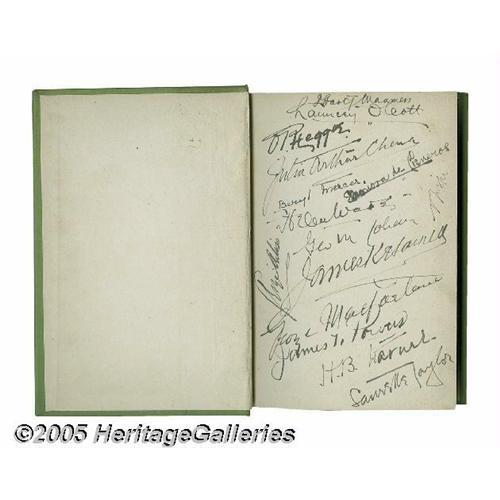 Chauncey Olcott
O.P. Heggie
Julie Arthur Cheney
Beryl Mercer
Helen Ware
Geo M Cohan
James K Hackett
George MacFarlane
James T. Powers
H.B. Warner
Laurette Taylor
©2005 HeritageGalleries